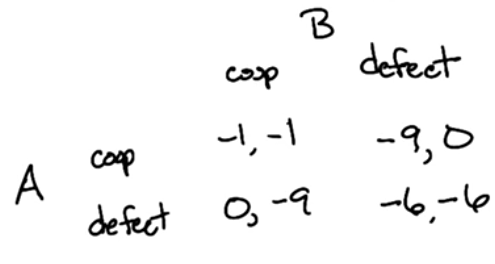 B
coop defect
coop -1, -1 -9, 0
A
defect 0, -9 -6, -6